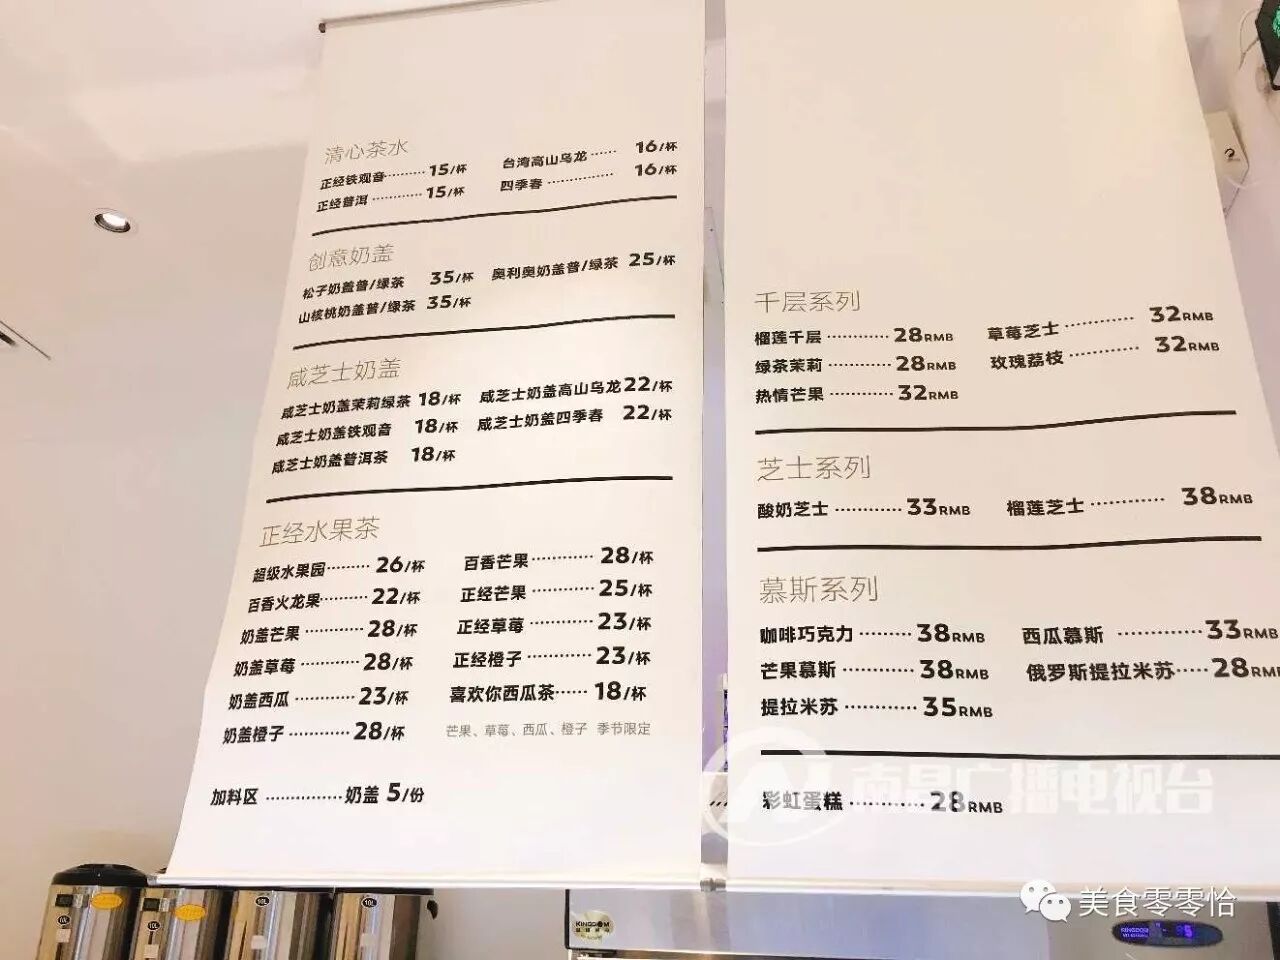 清心茶水
正经铁观音········· 15/杯
台湾高山乌龙······ 16/杯
正经普洱············ 15/杯
四季春··············· 16/杯
创意奶盖
松子奶盖普/绿茶 35/杯
奥利奥奶盖普/绿茶 25/杯
山核桃奶盖普/绿茶 35/杯
咸芝士奶盖
咸芝士奶盖茉莉绿茶 18/杯
咸芝士奶盖高山乌龙 22/杯
咸芝士奶盖铁观音 18/杯
咸芝士奶盖四季春 22/杯
咸芝士奶盖普洱茶 18/杯
正经水果茶
超级水果园········· 26/杯
百香芒果············ 28/杯
百香火龙果········· 22/杯
正经芒果············ 25/杯
奶盖芒果············ 28/杯
正经草莓············ 23/杯
奶盖草莓············ 28/杯
正经橙子············ 23/杯
奶盖西瓜············ 23/杯
喜欢你西瓜茶······ 18/杯
奶盖橙子············ 28/杯
芒果、草莓、西瓜、橙子 季节限定
加料区 ···············奶盖 5/份
千层系列
榴莲千层············ 28RMB
草莓芝士············ 32RMB
绿茶茉莉············ 28RMB
玫瑰荔枝············ 32RMB
热情芒果············ 32RMB
芝士系列
酸奶芝士············ 33RMB
榴莲芝士············ 38RMB
慕斯系列
咖啡巧克力········· 38RMB
西瓜慕斯············ 33RMB
芒果慕斯············ 38RMB
俄罗斯提拉米苏····· 28RMB
提拉米苏············ 35RMB
彩虹蛋糕············ 28RMB
南昌广播电视台
美食零零恰
10L
10L
10L
10L
KINGDOM
KINGDOM